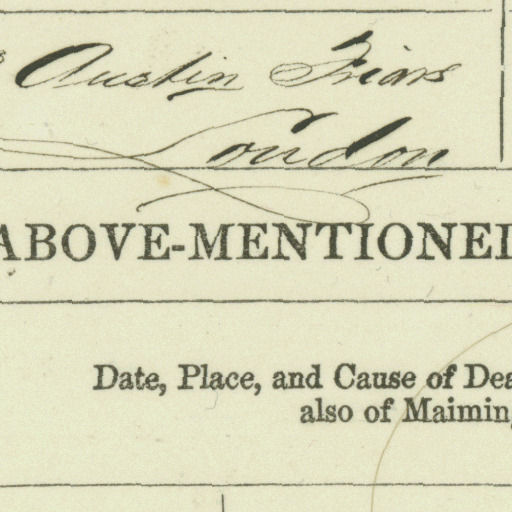 Austin Friars
London
ABOVE-MENTIONED
Date, Place, and Cause of Dea
also of Maiming